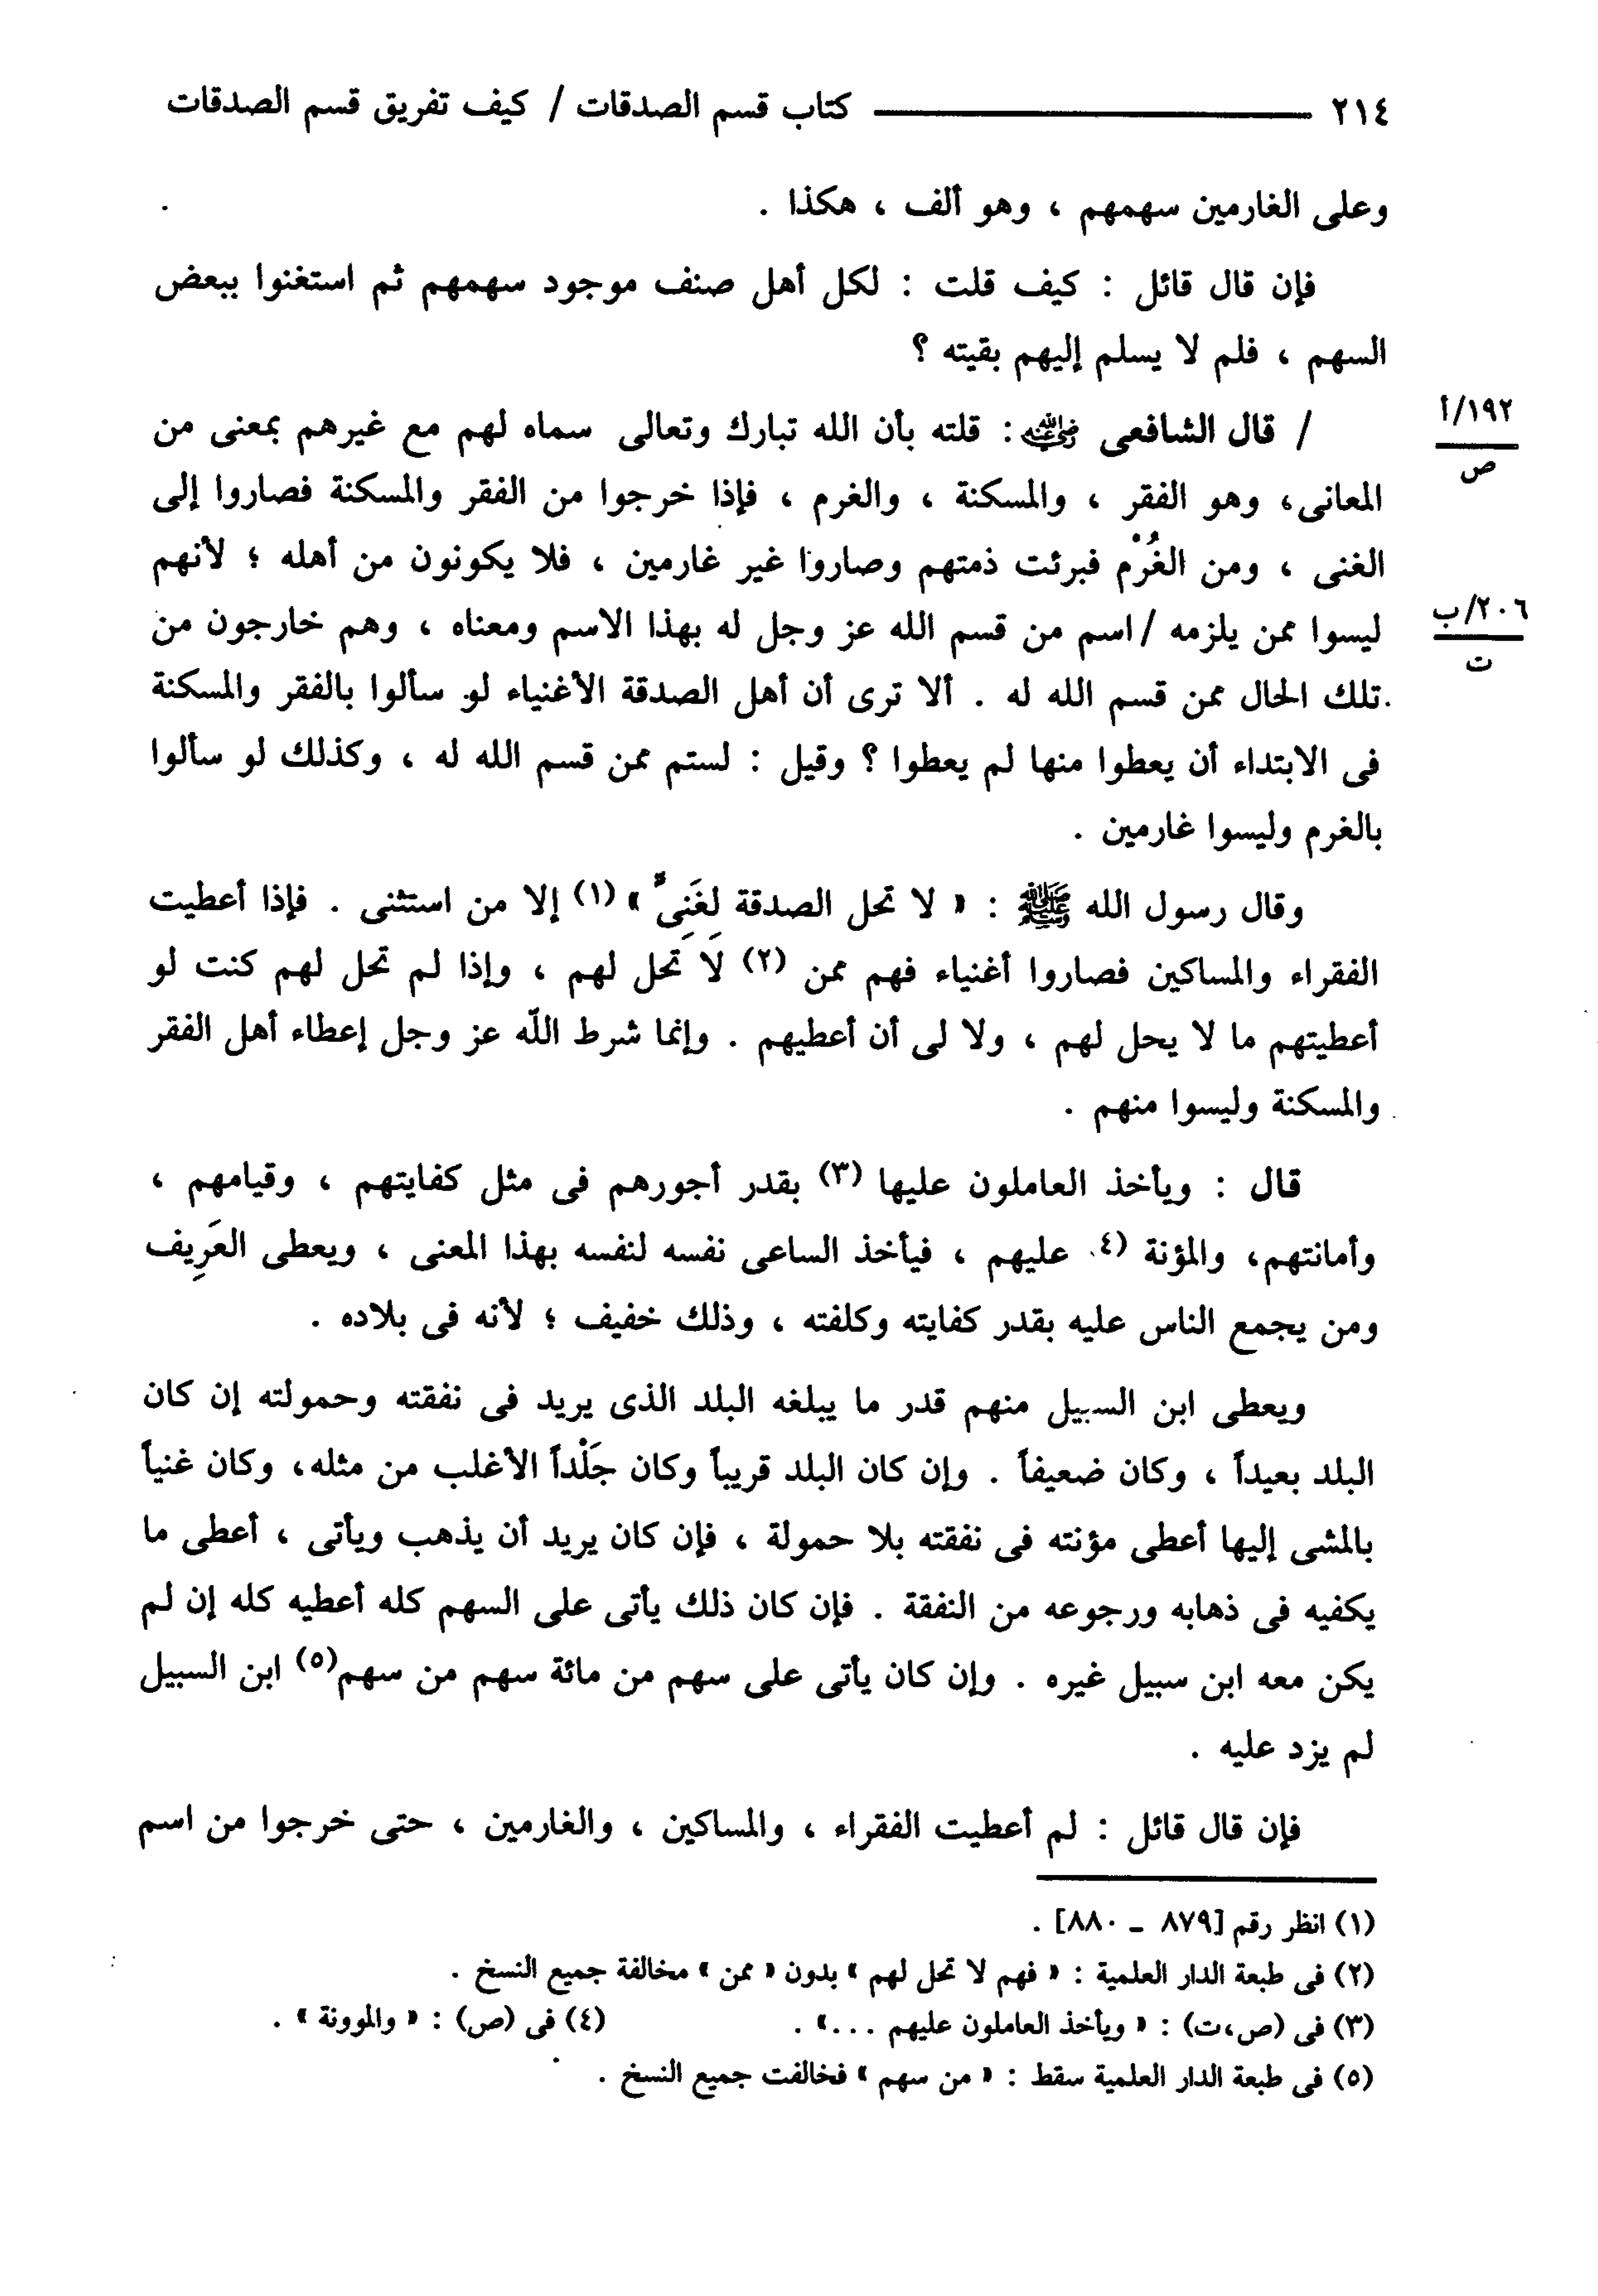 ٢١٤ ـــــــــــــــ كتاب قسم الصدقات / كيف تفريق قسم الصدقات
وعلى الغارمين سهمهم ، وهو ألف ، هكذا .
فإن قال قائل : كيف قلت : لكل أهل صنف موجود سهمهم ثم استغنوا ببعض
السهم ، فلم لا يسلم إليهم بقيته ؟
١٩٢/أ
ص
/ قال الشافعى رضي الله عنه : قلته بأن الله تبارك وتعالى سماه لهم مع غيرهم بمعنى من
المعانى، وهو الفقر ، والمسكنة ، والغرم ، فإذا خرجوا من الفقر والمسكنة فصاروا إلى
الغنى ، ومن الغُرْم فبرئت ذمتهم وصاروا غير غارمين ، فلا يكونون من أهله ؛ لأنهم
٢٠٦/ب
ت
ليسوا ممن يلزمه / اسم من قسم الله عز وجل له بهذا الاسم ومعناه ، وهم خارجون من
تلك الحال ممن قسم الله له . ألا ترى أن أهل الصدقة الأغنياء لو سألوا بالفقر والمسكنة
فى الابتداء أن يعطوا منها لم يعطوا ؟ وقيل : لستم ممن قسم الله له ، وكذلك لو سألوا
بالغرم وليسوا غارمين .
وقال رسول الله ﷺ : « لا تحل الصدقة لِغَنِىٍّ » (١) إلا من استثنى . فإذا أعطيت
الفقراء والمساكين فصاروا أغنياء فهم ممن (٢) لَا تَحل لهم ، وإذا لم تحل لهم كنت لو
أعطيتهم ما لا يحل لهم ، ولا لى أن أعطيهم . وإنما شرط اللّه عز وجل إعطاء أهل الفقر
والمسكنة وليسوا منهم .
قال : ويأخذ العاملون عليها (٣) بقدر أجورهم فى مثل كفايتهم ، وقيامهم ،
وأمانتهم، والمؤنة (٤) عليهم ، فيأخذ الساعى نفسه لنفسه بهذا المعنى ، ويعطى العَرِيف
ومن يجمع الناس عليه بقدر كفايته وكلفته ، وذلك خفيف ؛ لأنه فى بلاده .
ويعطى ابن السبيل منهم قدر ما يبلغه البلد الذى يريد فى نفقته وحمولته إن كان
البلد بعيداً ، وكان ضعيفاً . وإن كان البلد قريباً وكان جَلْداً الأغلب من مثله، وكان غنياً
بالمشى إليها أعطى مؤنته فى نفقته بلا حمولة ، فإن كان يريد أن يذهب ويأتى ، أعطى ما
يكفيه فى ذهابه ورجوعه من النفقة . فإن كان ذلك يأتى على السهم كله أعطيه كله إن لم
يكن معه ابن سبيل غيره . وإن كان يأتى على سهم من مائة سهم من سهم(٥) ابن السبيل
لم يزد عليه .
فإن قال قائل : لم أعطيت الفقراء ، والمساكين ، والغارمين ، حتى خرجوا من اسم
(١) انظر رقم [٨٧٩ - ٨٨٠] .
(٢) فى طبعة الدار العلمية : « فهم لا تحل لهم » بدون « ممن » مخالفة جميع النسخ .
(٣) فى (ص،ت) : « ويأخذ العاملون عليهم ...» . (٤) فى (ص) : « والموونة » .
(٥) فى طبعة الدار العلمية سقط : « من سهم » فخالفت جميع النسخ .